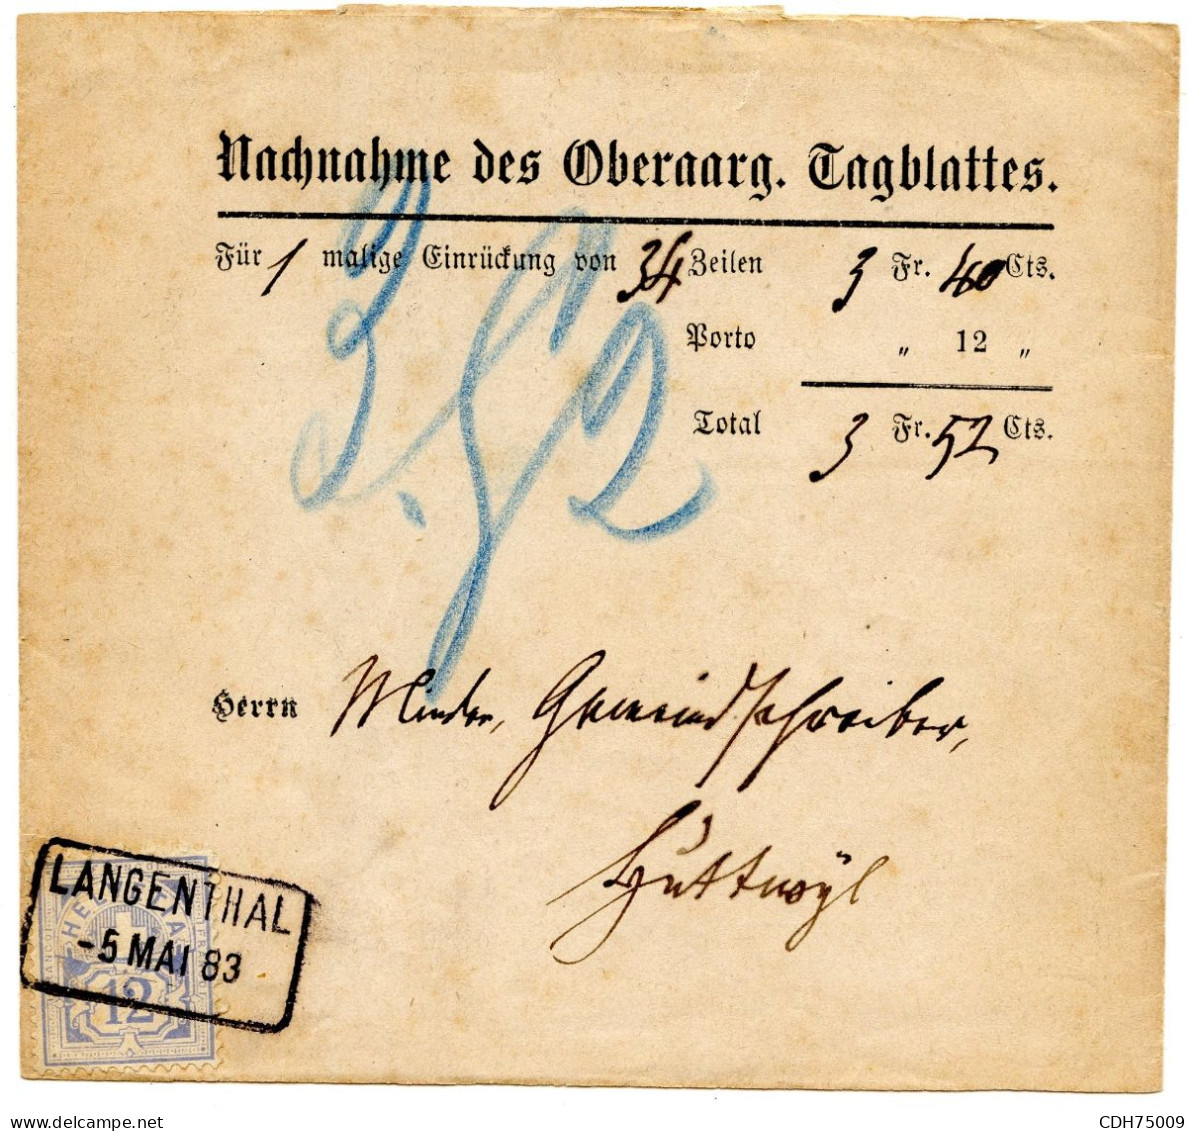 Nachnahme des Oberaarg. Tagblattes.
Für 1 malige Einrückung von 34 Zeilen 3 Fr. 40 Cts.
Porto „ 12 „
Total 3 Fr. 52 Cts.
3.52
Herrn Minder, Gemeindschreiber,
Huttwÿl
LANGENTHAL
-5 MAI 83
FRANCO
HELVETIA
12
CDH75009